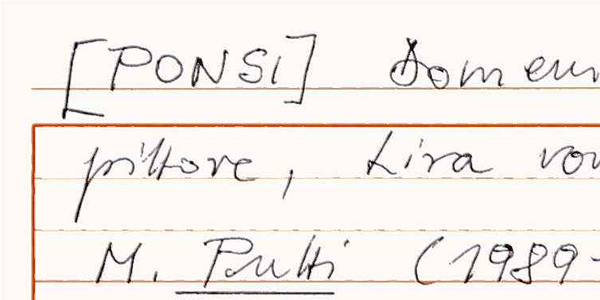 [PONSI] Domen
pittore, Lira
M. Putti (1989-